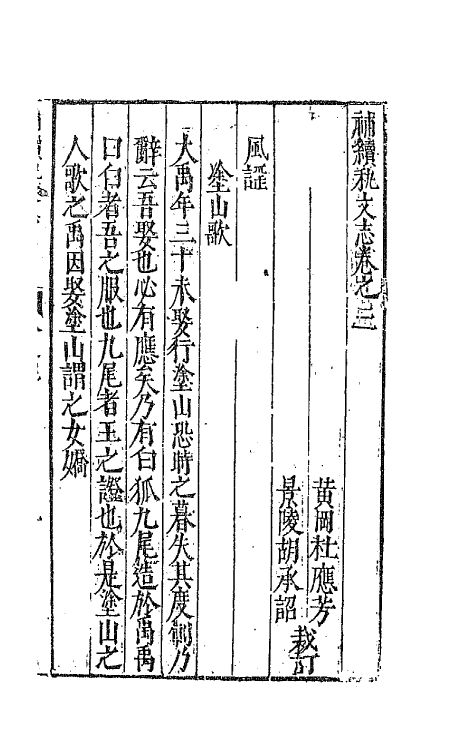 補續全蜀秇文志卷之三
黄岡杜應芳
景陵胡承詔
裁訂
風謡
塗山歌
大禹年三十未娶行塗山恐時之暮失其度制乃
辭云吾娶也必有應矣乃有白狐九尾造於禹禹
曰白者吾之服也九尾者王之證也於是塗山之
人歌之禹因娶塗山謂之女嬌